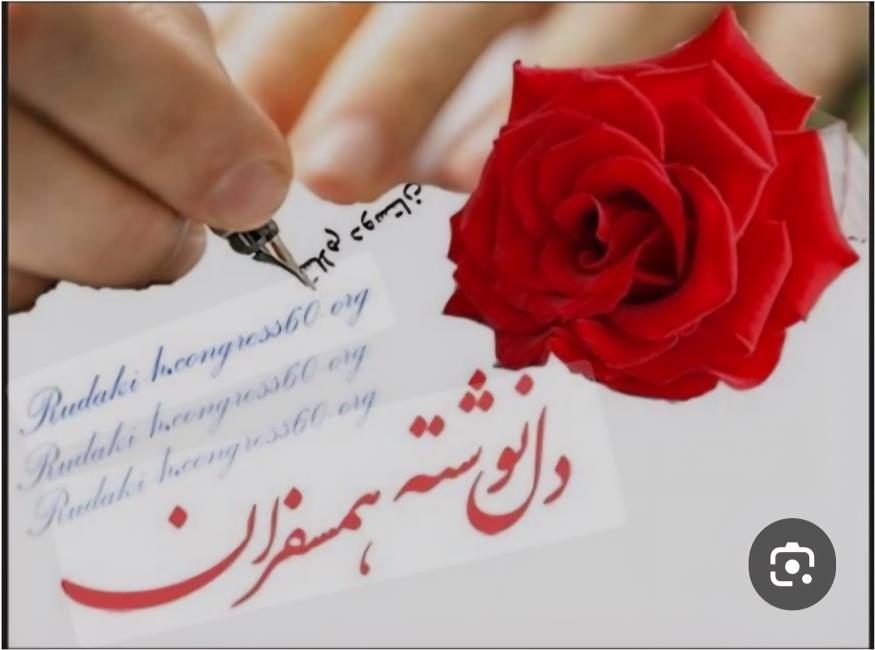 سلام دوستان
Rudaki-h.congress60.org
Rudaki-h.congress60.org
Rudaki-h.congress60.org
دل نوشته همسفران